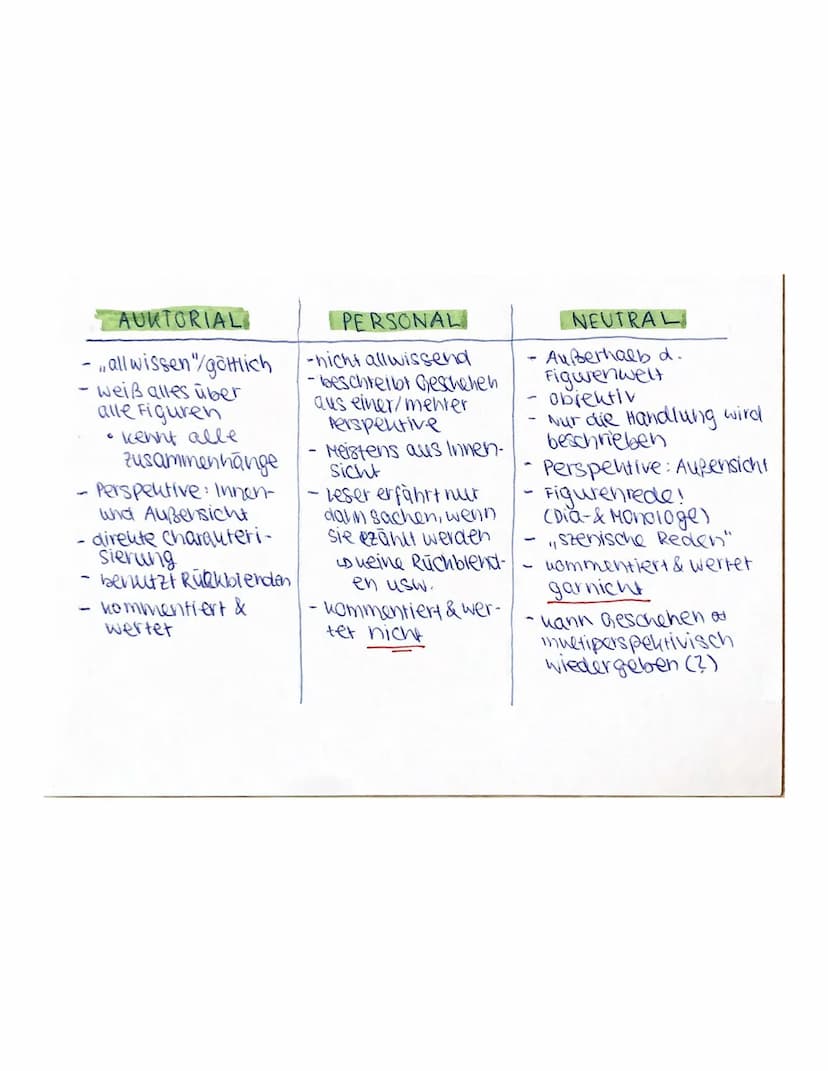 AUKTORIAL
- „allwissen"/göttlich
- weiß alles über
alle Figuren
• kennt alle
zusammenhänge
- Perspektive: Innen-
und Außensicht
- direkte Charakteri-
sierung
- benutzt Rückblenden
- kommentiert &
wertet
PERSONAL
- nicht allwissend
- beschreibt Geschehen
aus einer/mehrer
Perspektive
- Meistens aus Innen-
sicht
- Leser erfährt nur
dann sachen, wenn
sie ezählt werden
↳ keine Rückblend-
en usw.
- kommentiert & wer-
tet nicht
NEUTRAL
- Außerhalb d.
Figurenwelt
- objektiv
- Nur die Handlung wird
beschrieben
- Perspektive: Außensicht
- Figurenrede!
(Dia- & Monologe)
- „szenische Reden"
- kommentiert & wertet
garnicht
- kann Geschehen
multiperspektivisch
wiedergeben (?)